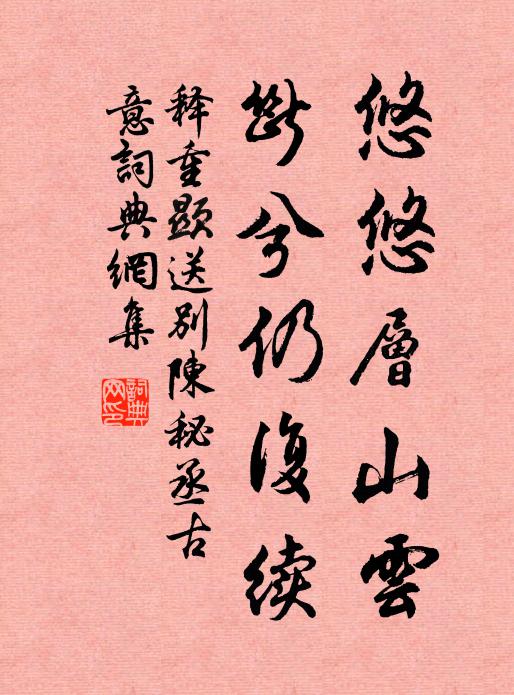 悠悠層山雲
斷兮仍復续
释重顯送别陳秘丞古
意詞典網集
詞典
网印